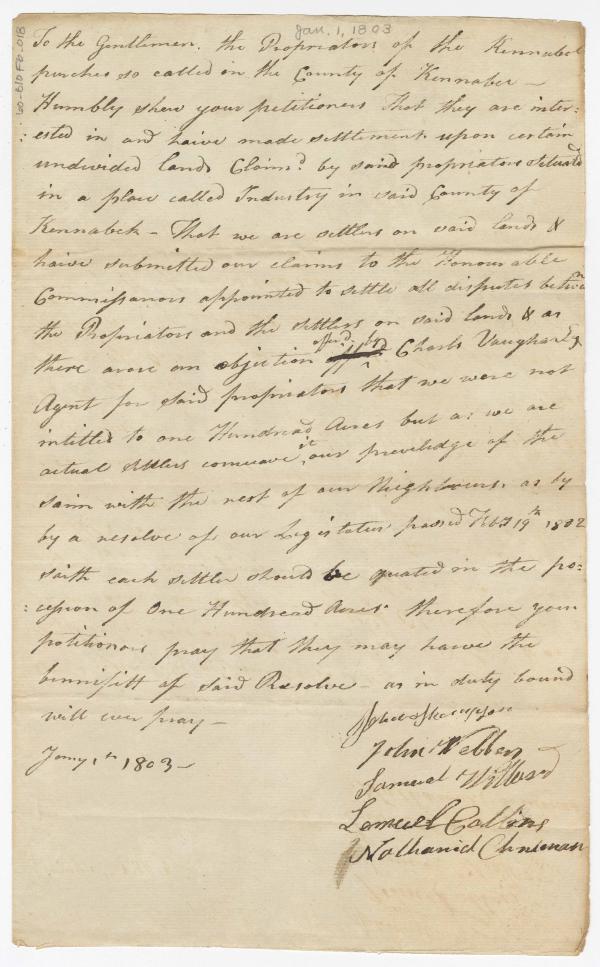 Jan. 1, 1803
To the Gentlemen. the Propriators of the Kennabek
purches so called in the County of Kennabec —
Humbly shew your petitioners That they are inter-
:ested in and haive made settlement upon certain
undivided lands Claim.d by said propriators Situard
in a place called Industry in said County of
Kennabek — That we are settlers on said lands &
haive submitted our claims to the Honourable
Commissanors appointed to settle all disputes betwn
the Propriators and the settlers on said lands & as
there arose an objection offerd. by Charls Vaughan Esq
Agent for said propriators that we were not
intitled to one Hundread Acres but as we are
actual settlers conceave it our preveledge of the
saim with the rest of our Neighbours. as by
by a resolve of our Legistatur passed Feby 19th 1802
saith each settler should be quated in the po-
:cession of One Hundread Acres. therefore your
potitionors pray that they may haive the
bennifitt of said Resolve — as in duty bound
will ever pray —
Jany 1th 1803 —
John Webber
Samuel Willard
Lemuel Collins
Nathaniel Chapman